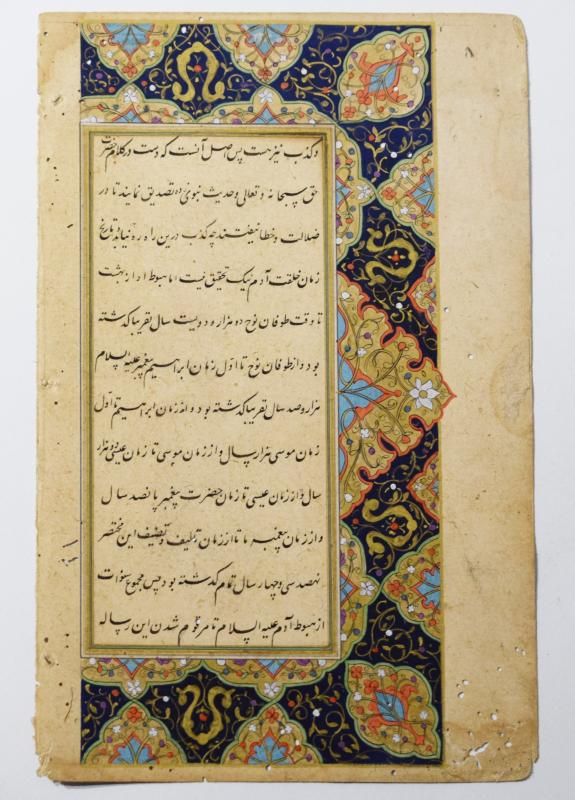 و کذب نیز هست پس اصل آنست که دست در کلام حضرت
حق سبحانه و تعالی و حدیث نبوی زده تصدیق نمایند تا در
ضلالت و خطا نیفتند چه کذب درین راه ره نیابد تاریخ
زمان خلقت آدم نیک تحقیق نیست اما هبوط او از بهشت
تا وقت طوفان نوح دو هزار و دویست سال تقریبا گذشته
بود و از طوفان نوح تا اول زمان ابراهیم پیغمبر علیه السلام
هزار و صد سال تقریبا گذشته بود و از زمان ابراهیم تا اول
زمان موسی هزار سال و از زمان موسی تا زمان عیسی دو هزار
سال و از زمان عیسی تا زمان حضرت پیغمبر پانصد سال
و از زمان پیغمبر ما تا زمان تالیف و تصنیف این مختصر
نهصد سی و چهار سال تمام گذشته بود پس مجموع سنوات
از هبوط آدم علیه السلام تا مرقوم شدن این رساله